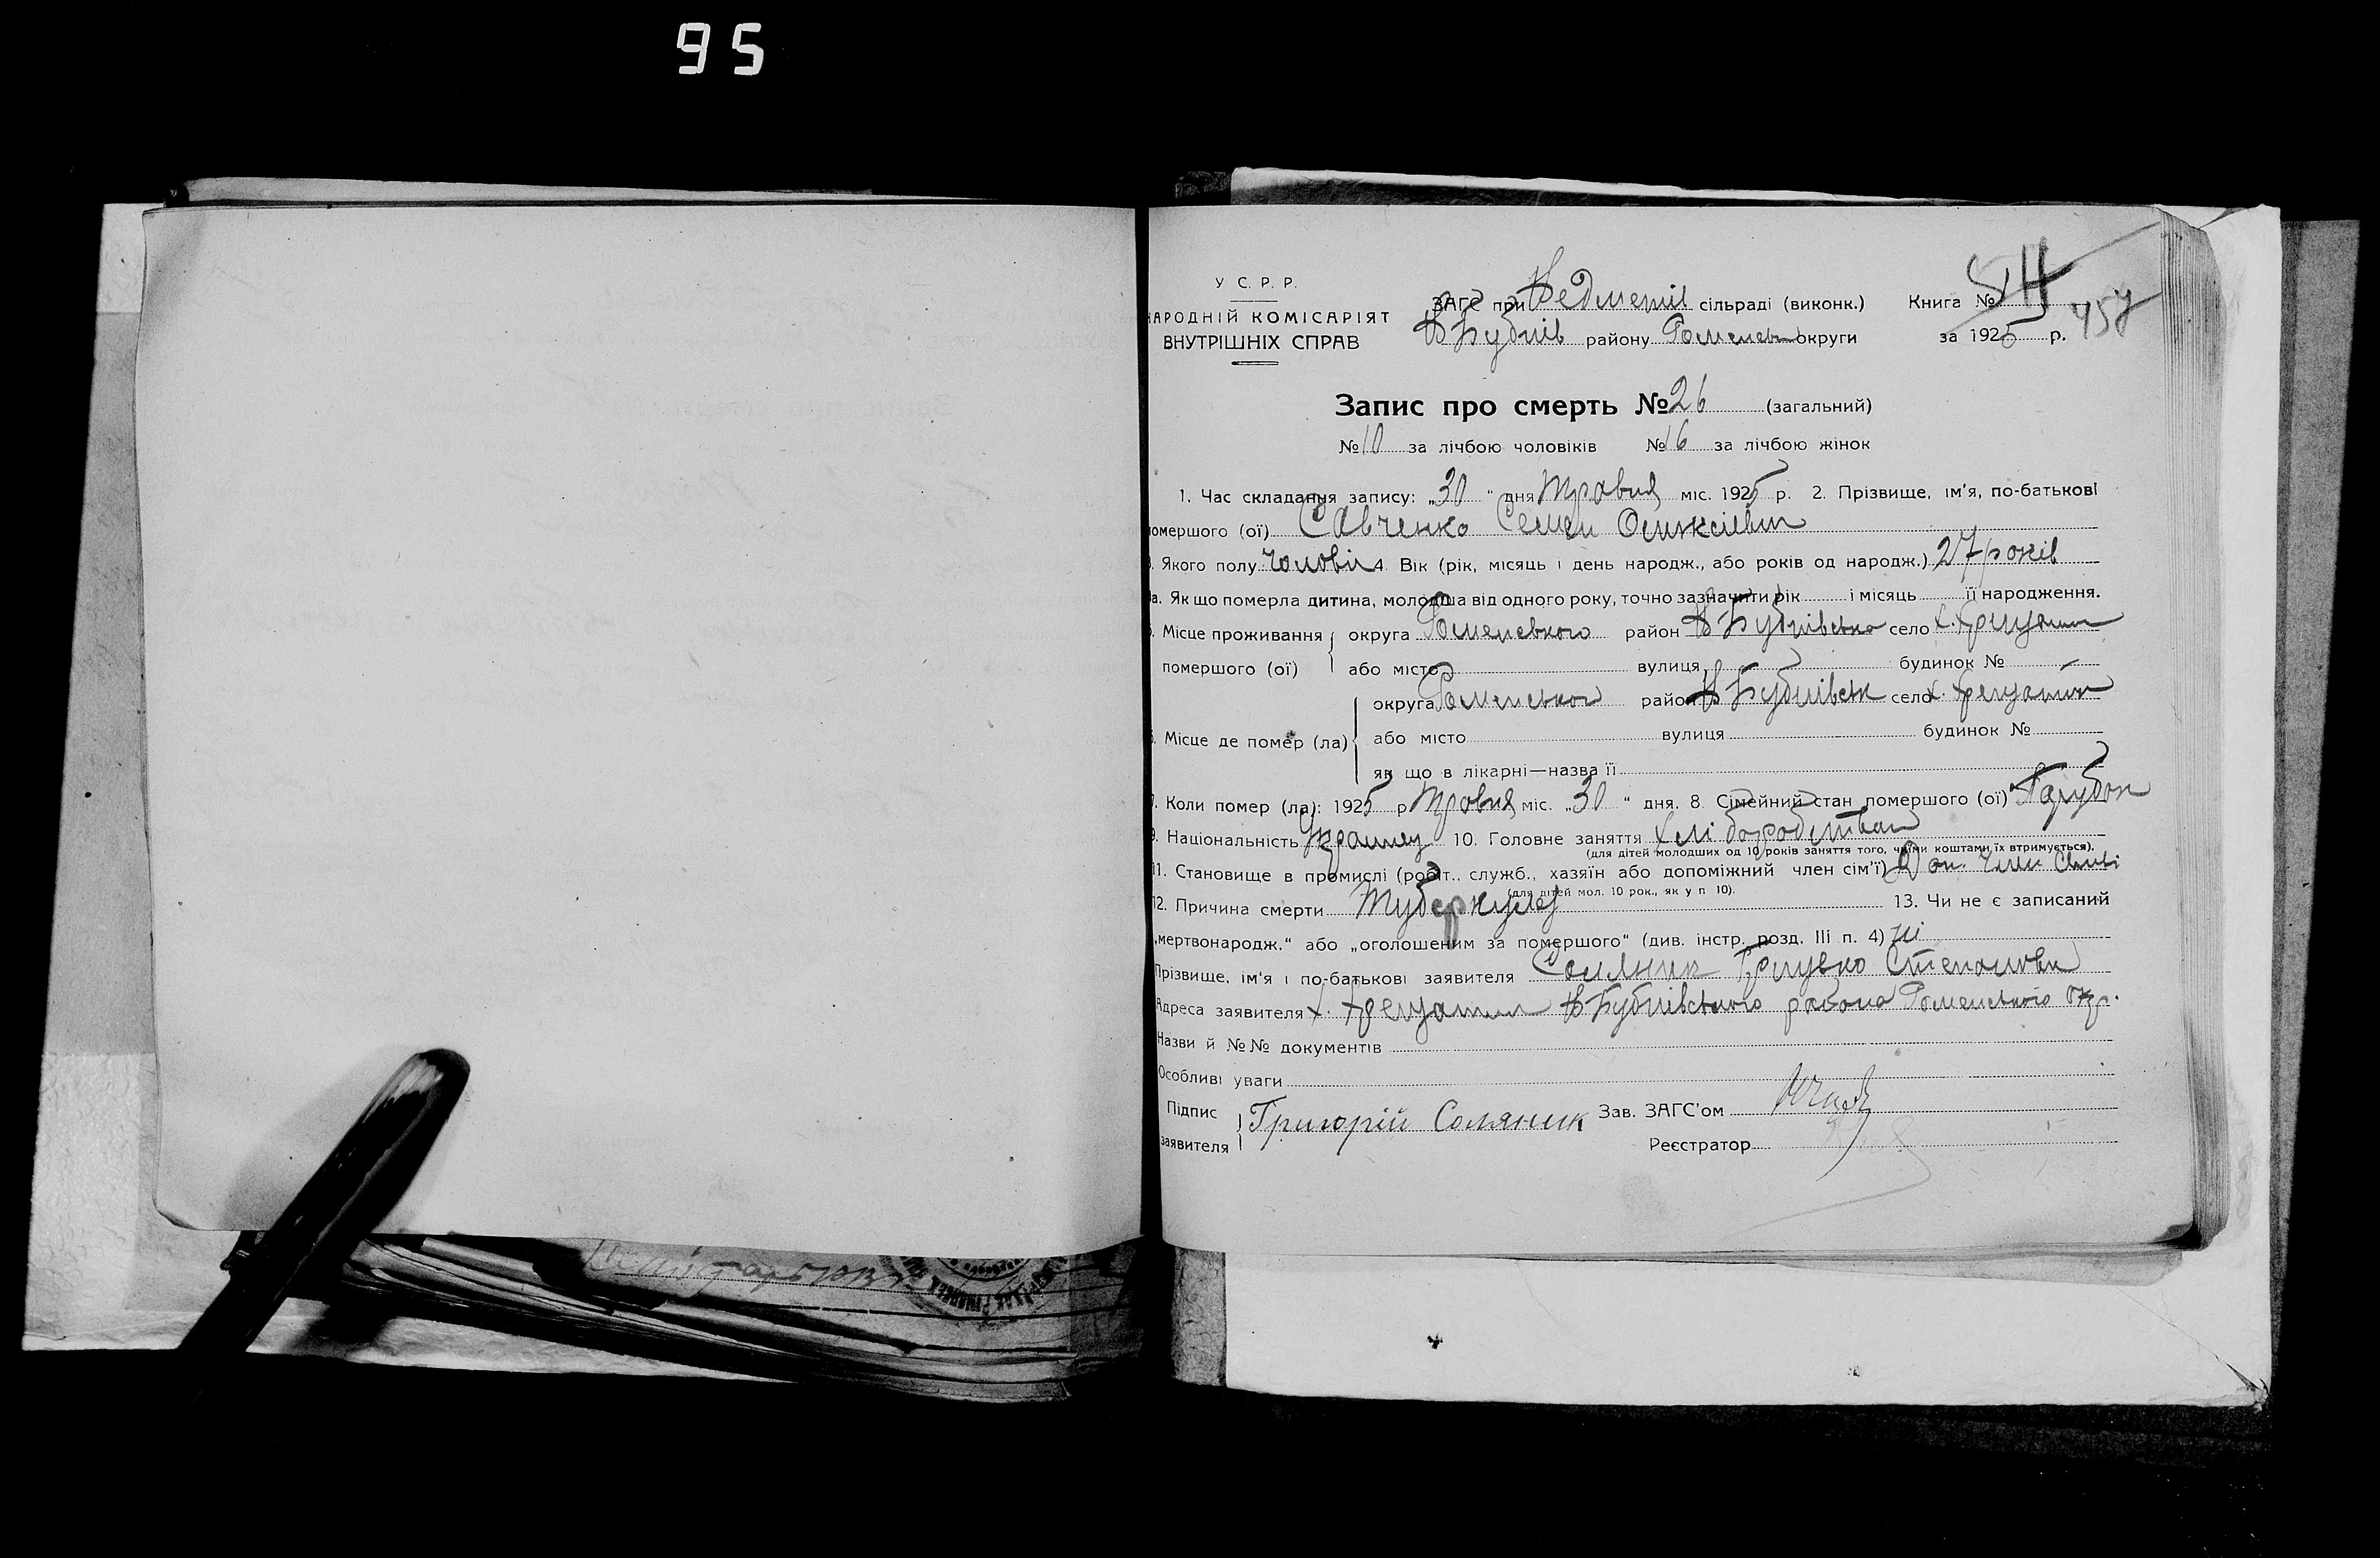 95
У С. Р. Р.
НАРОДНІЙ КОМІСАРІЯТ
ВНУТРІШНІХ СПРАВ
ЗАГС при сільраді (виконк.)
району Роменськ округи
Книга №
за 1925 р.
Запис про смерть № 26 (загальний)
№ 10 за лічбою чоловіків № 16 за лічбою жінок
1. Час складання запису: „30“ дня Травня міс. 1925 р. 2. Прізвище, ім'я, по-батькові
помершого (ої) Савченко Семен
Якого полу 4. Вік (рік, місяць і день народж., або років од народж.) 27 років
а. Як що померла дитина, молодша від одного року, точно зазначити рік і місяць її народження.
Місце проживання округа Роменського район село
помершого (ої) або місто вулиця будинок №
округа район село
Місце де помер (ла) або місто вулиця будинок №
як що в лікарні—назва її
Коли помер (ла): 1925 р Травня міс. „30“ дня. 8. Сімейний стан помершого (ої) Парубок
9. Національність 10. Головне заняття
(для дітей молодших од 10 років заняття того, чиїми коштами їх втримується).
11. Становище в промислі (робіт., служб., хазяїн або допоміжний член сім'ї) Доп. член
(для дітей мол. 10 рок., як у п 10).
12. Причина смерти Туберкульоз 13. Чи не є записаний
„мертвонародж.“ або „оголошеним за помершого“ (див. інстр. розд. III п. 4) ні
Прізвище, ім'я і по-батькові заявителя Соляник
Адреса заявителя х. района Роменського Окр.
Назви й №№ документів
Особливі уваги
Підпис
заявителя
Григорій Соляник
Зав. ЗАГС'ом
Реєстратор